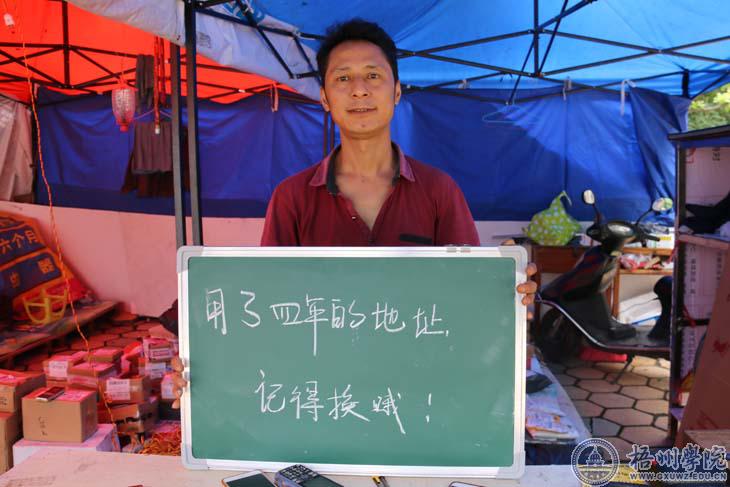 六个月
用了四年的地址,
记得换哦!
梧州学院
GXUWZ.EDU.CN